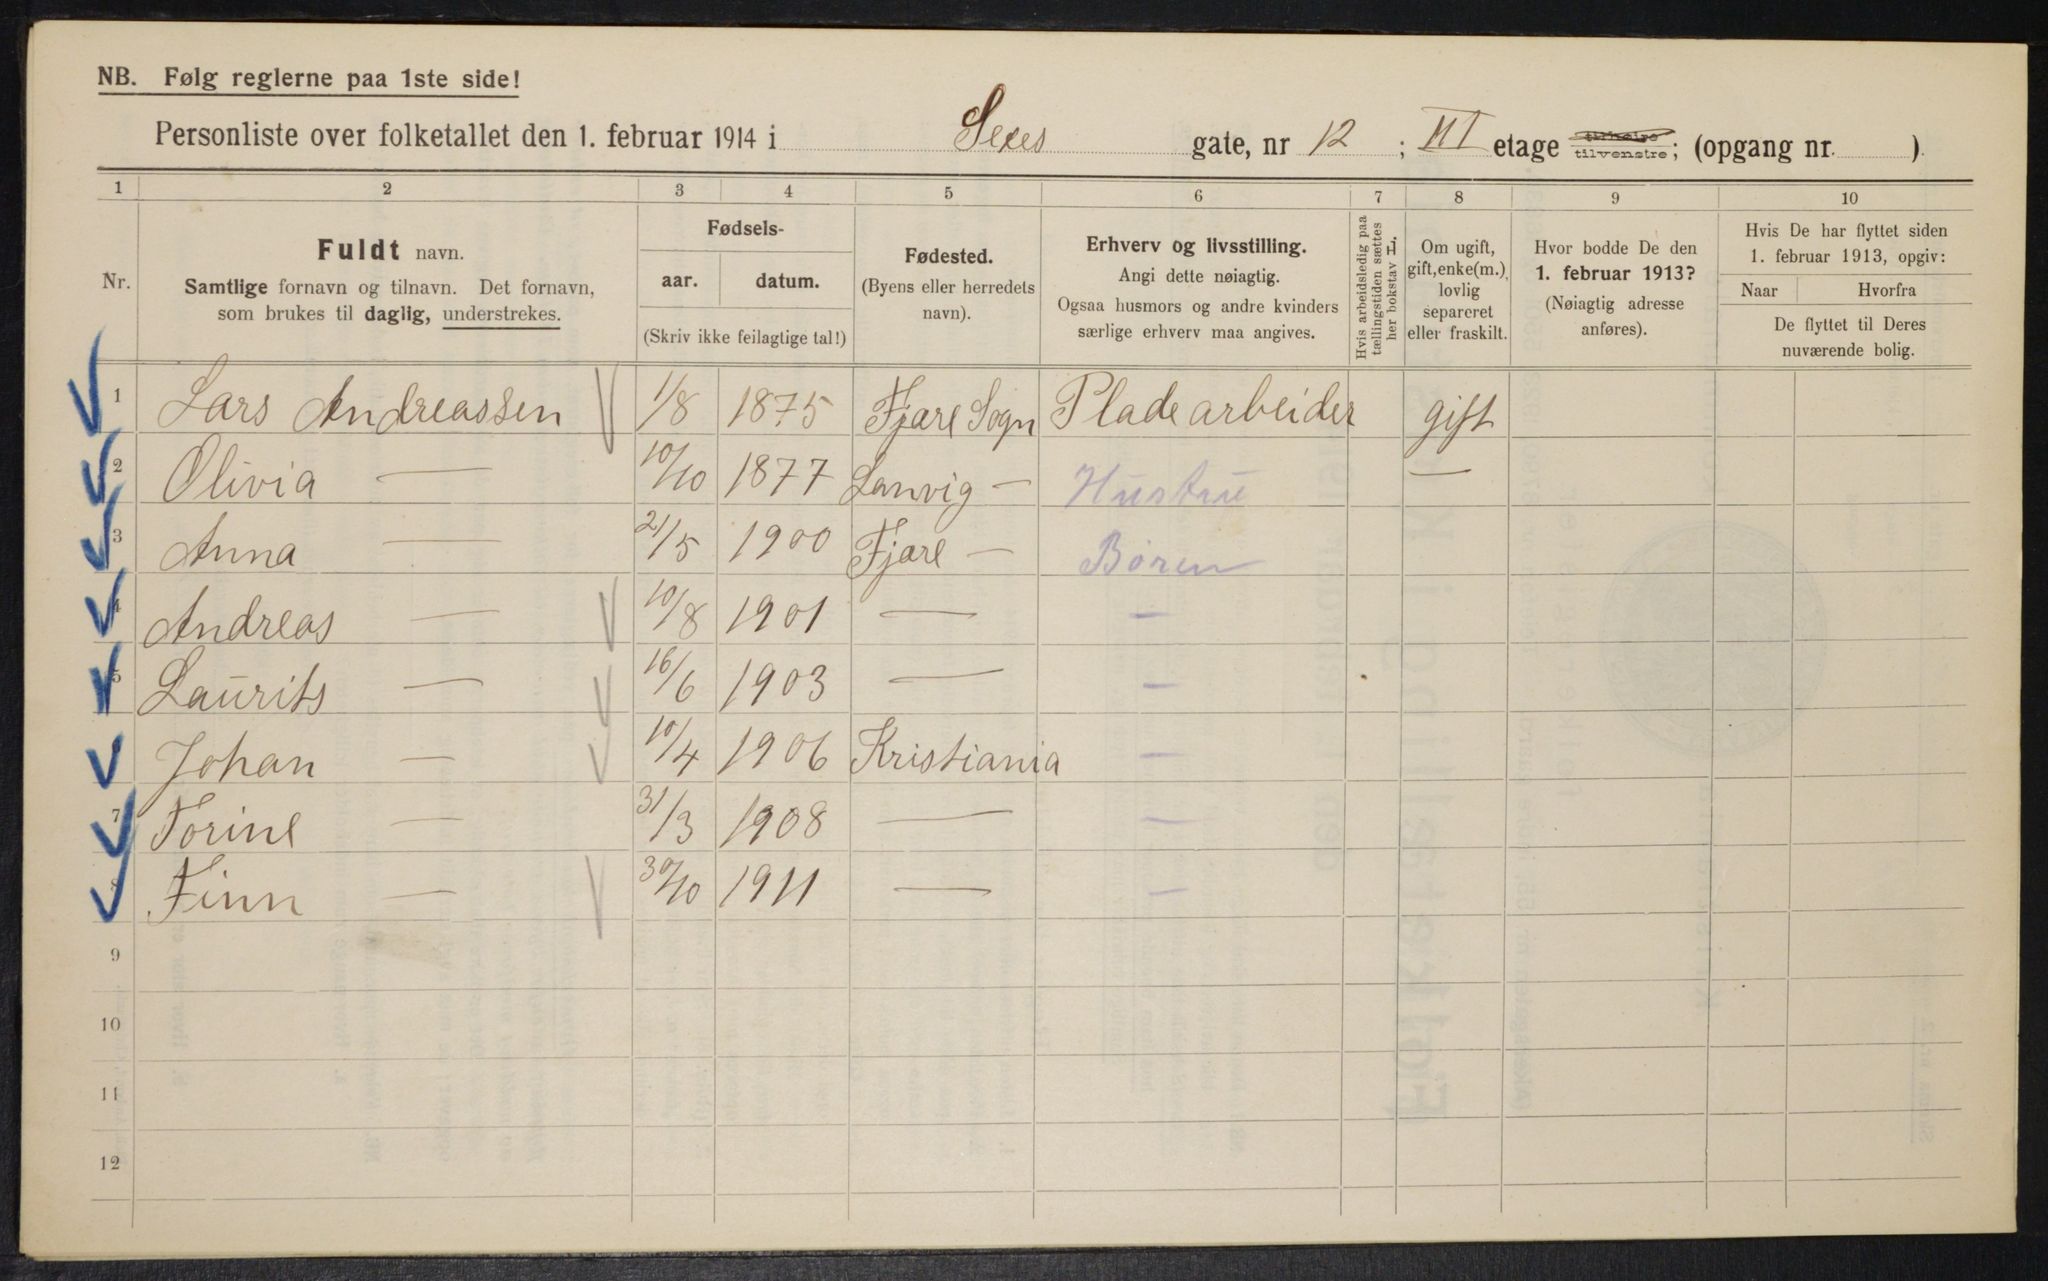 NB. Følg reglerne paa 1ste side!
Personliste over folketallet den 1. februar 1914 i Sexes gate, nr 12 ; III etage tilhøire tilvenstre; (opgang nr. )
1 2 3 4 5 6 7 8 9 10
Nr.
Fuldt navn.
Samtlige fornavn og tilnavn. Det fornavn,
som brukes til daglig, understrekes.
Fødsels-
aar. datum.
(Skriv ikke feilagtige tal!)
Fødested.
(Byens eller herredets
navn).
Erhverv og livsstilling.
Angi dette nøiagtig.
Ogsaa husmors og andre kvinders
særlige erhverv maa angives.
Hvis arbeidsledig paa
tællingstiden sættes
her bokstav H.
Om ugift,
gift, enke(m.),
lovlig
separeret
eller fraskilt.
Hvor bodde De den
1. februar 1913?
(Nøiagtig adresse
anføres).
Hvis De har flyttet siden
1. februar 1913, opgiv:
Naar Hvorfra
De flyttet til Deres
nuværende bolig.
1 Lars Andreassen 1/8 1875 Fjære Sogn Pladearbeider gift
2 Olivia — 10/10 1877 Lanvig — Hustru —
3 Anna — 21/5 1900 Fjære — Børen
4 Andreas — 10/8 1901 — —
5 Laurits — 16/6 1903 — —
6 Johan — 10/4 1906 Kristiania —
7 Torine — 31/3 1908 — —
8 Finn — 30/10 1911 — —
9
10
11
12